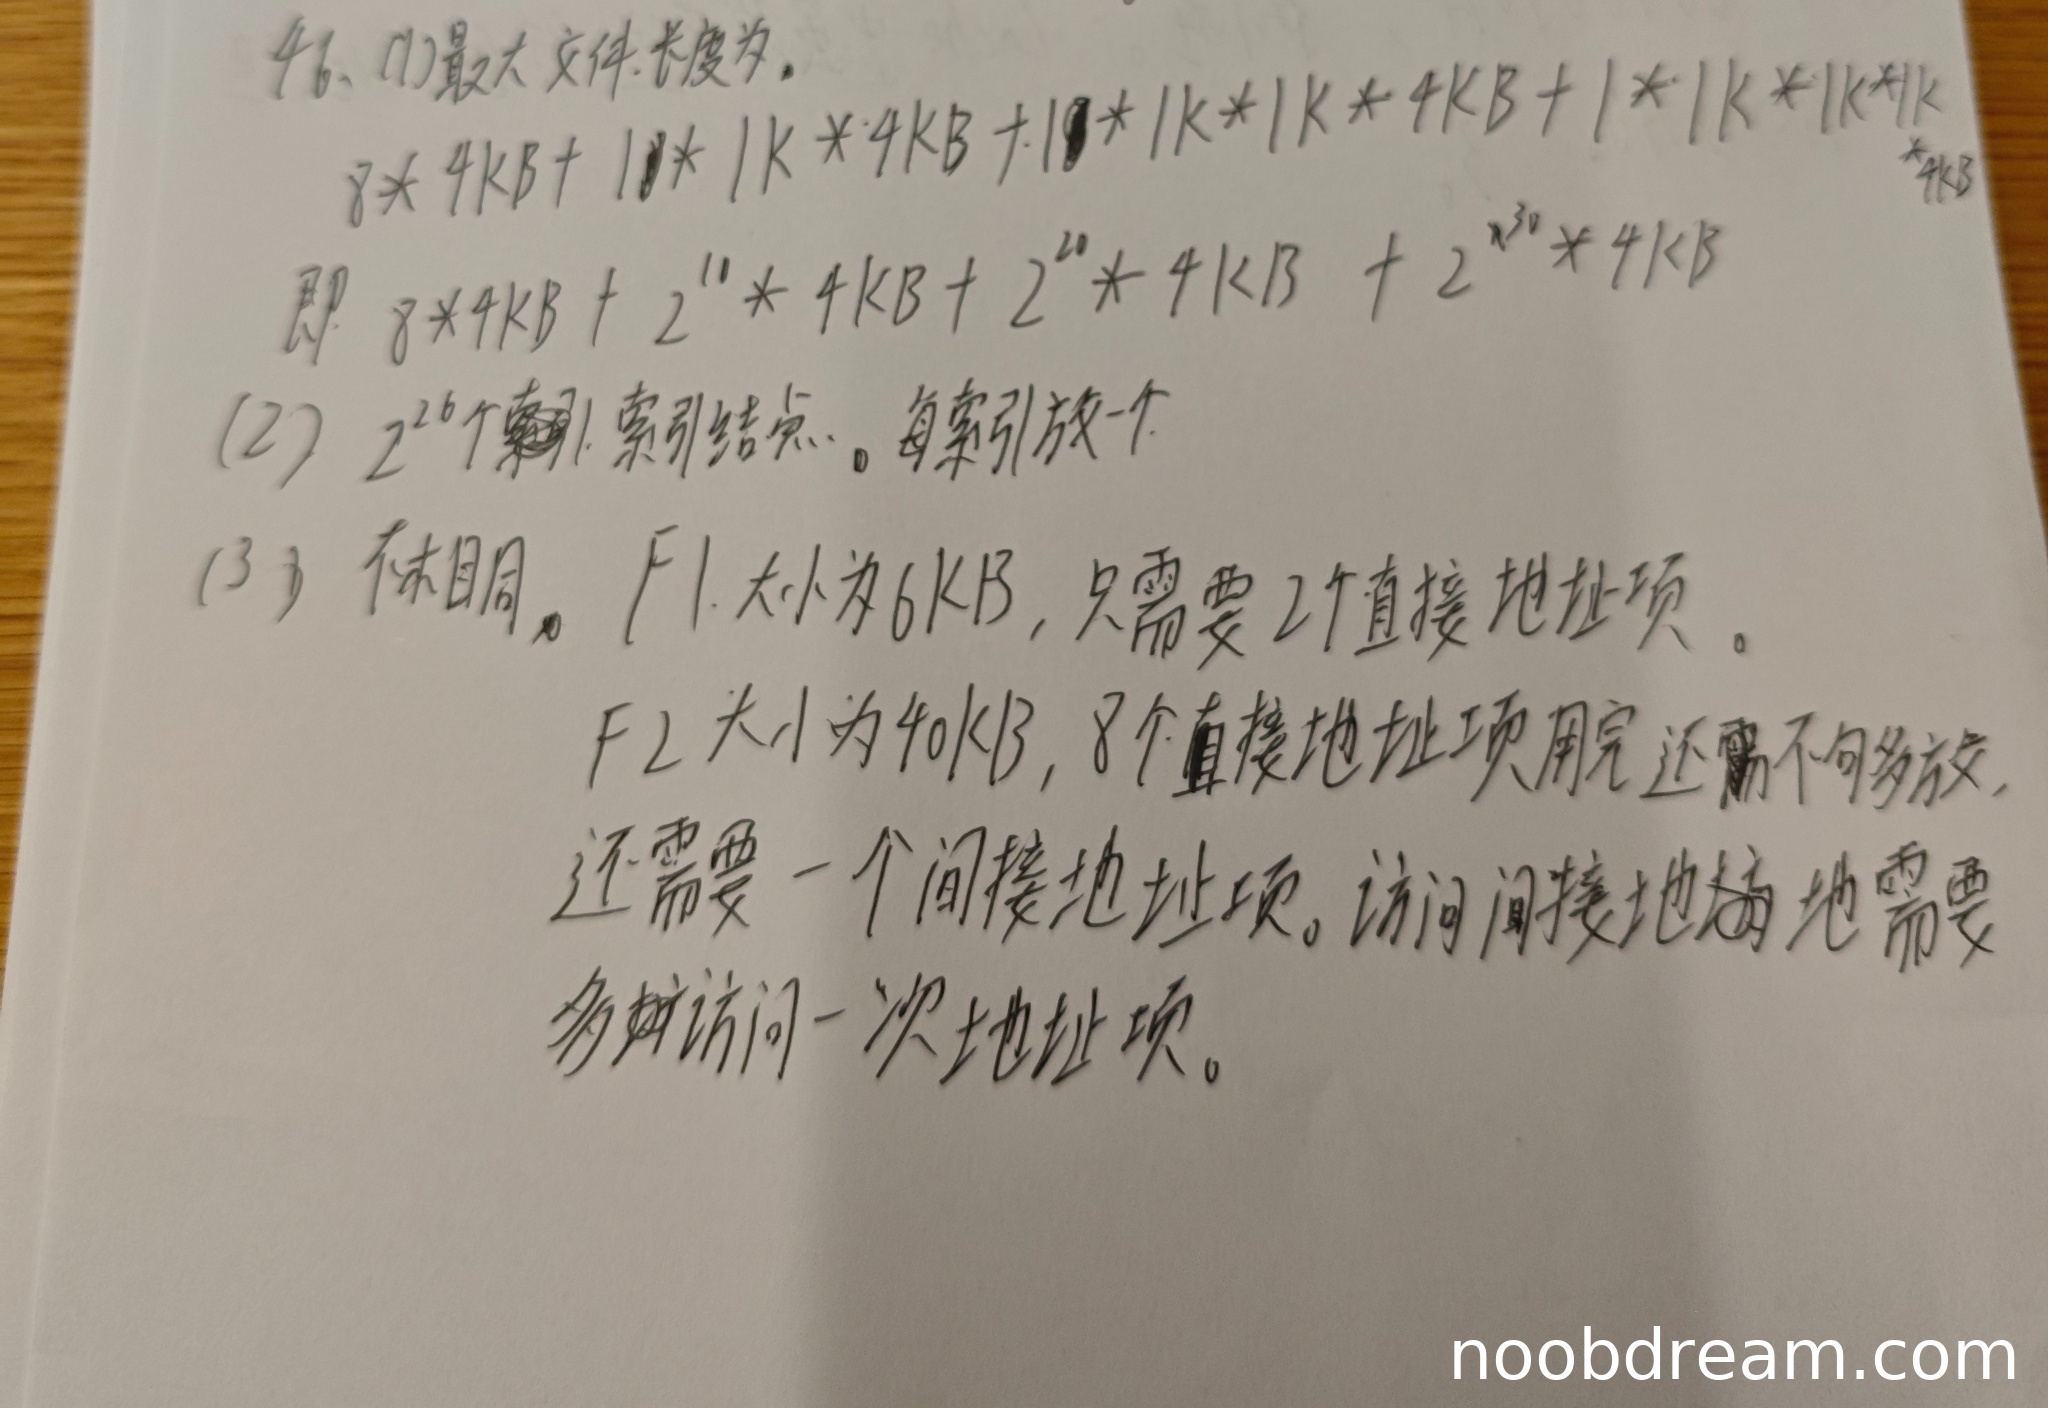 46、(1)最大文件长度为.
8*4KB+1*1K*4KB+1*1K*1K*4KB+1*1K*1K*1K
*4KB
即 8*4KB+2^10*4KB+2^20*4KB+2^30*4KB
(2) 2^26个索引结点。每索引放一个
(3) 不相同。F1大小为6KB,只需要2个直接地址项。
F2大小为40KB,8个直接地址项用完还不够多放,
还需要一个间接地址项。访问间接地地需要
多访问一次地址项。
noobdream.com